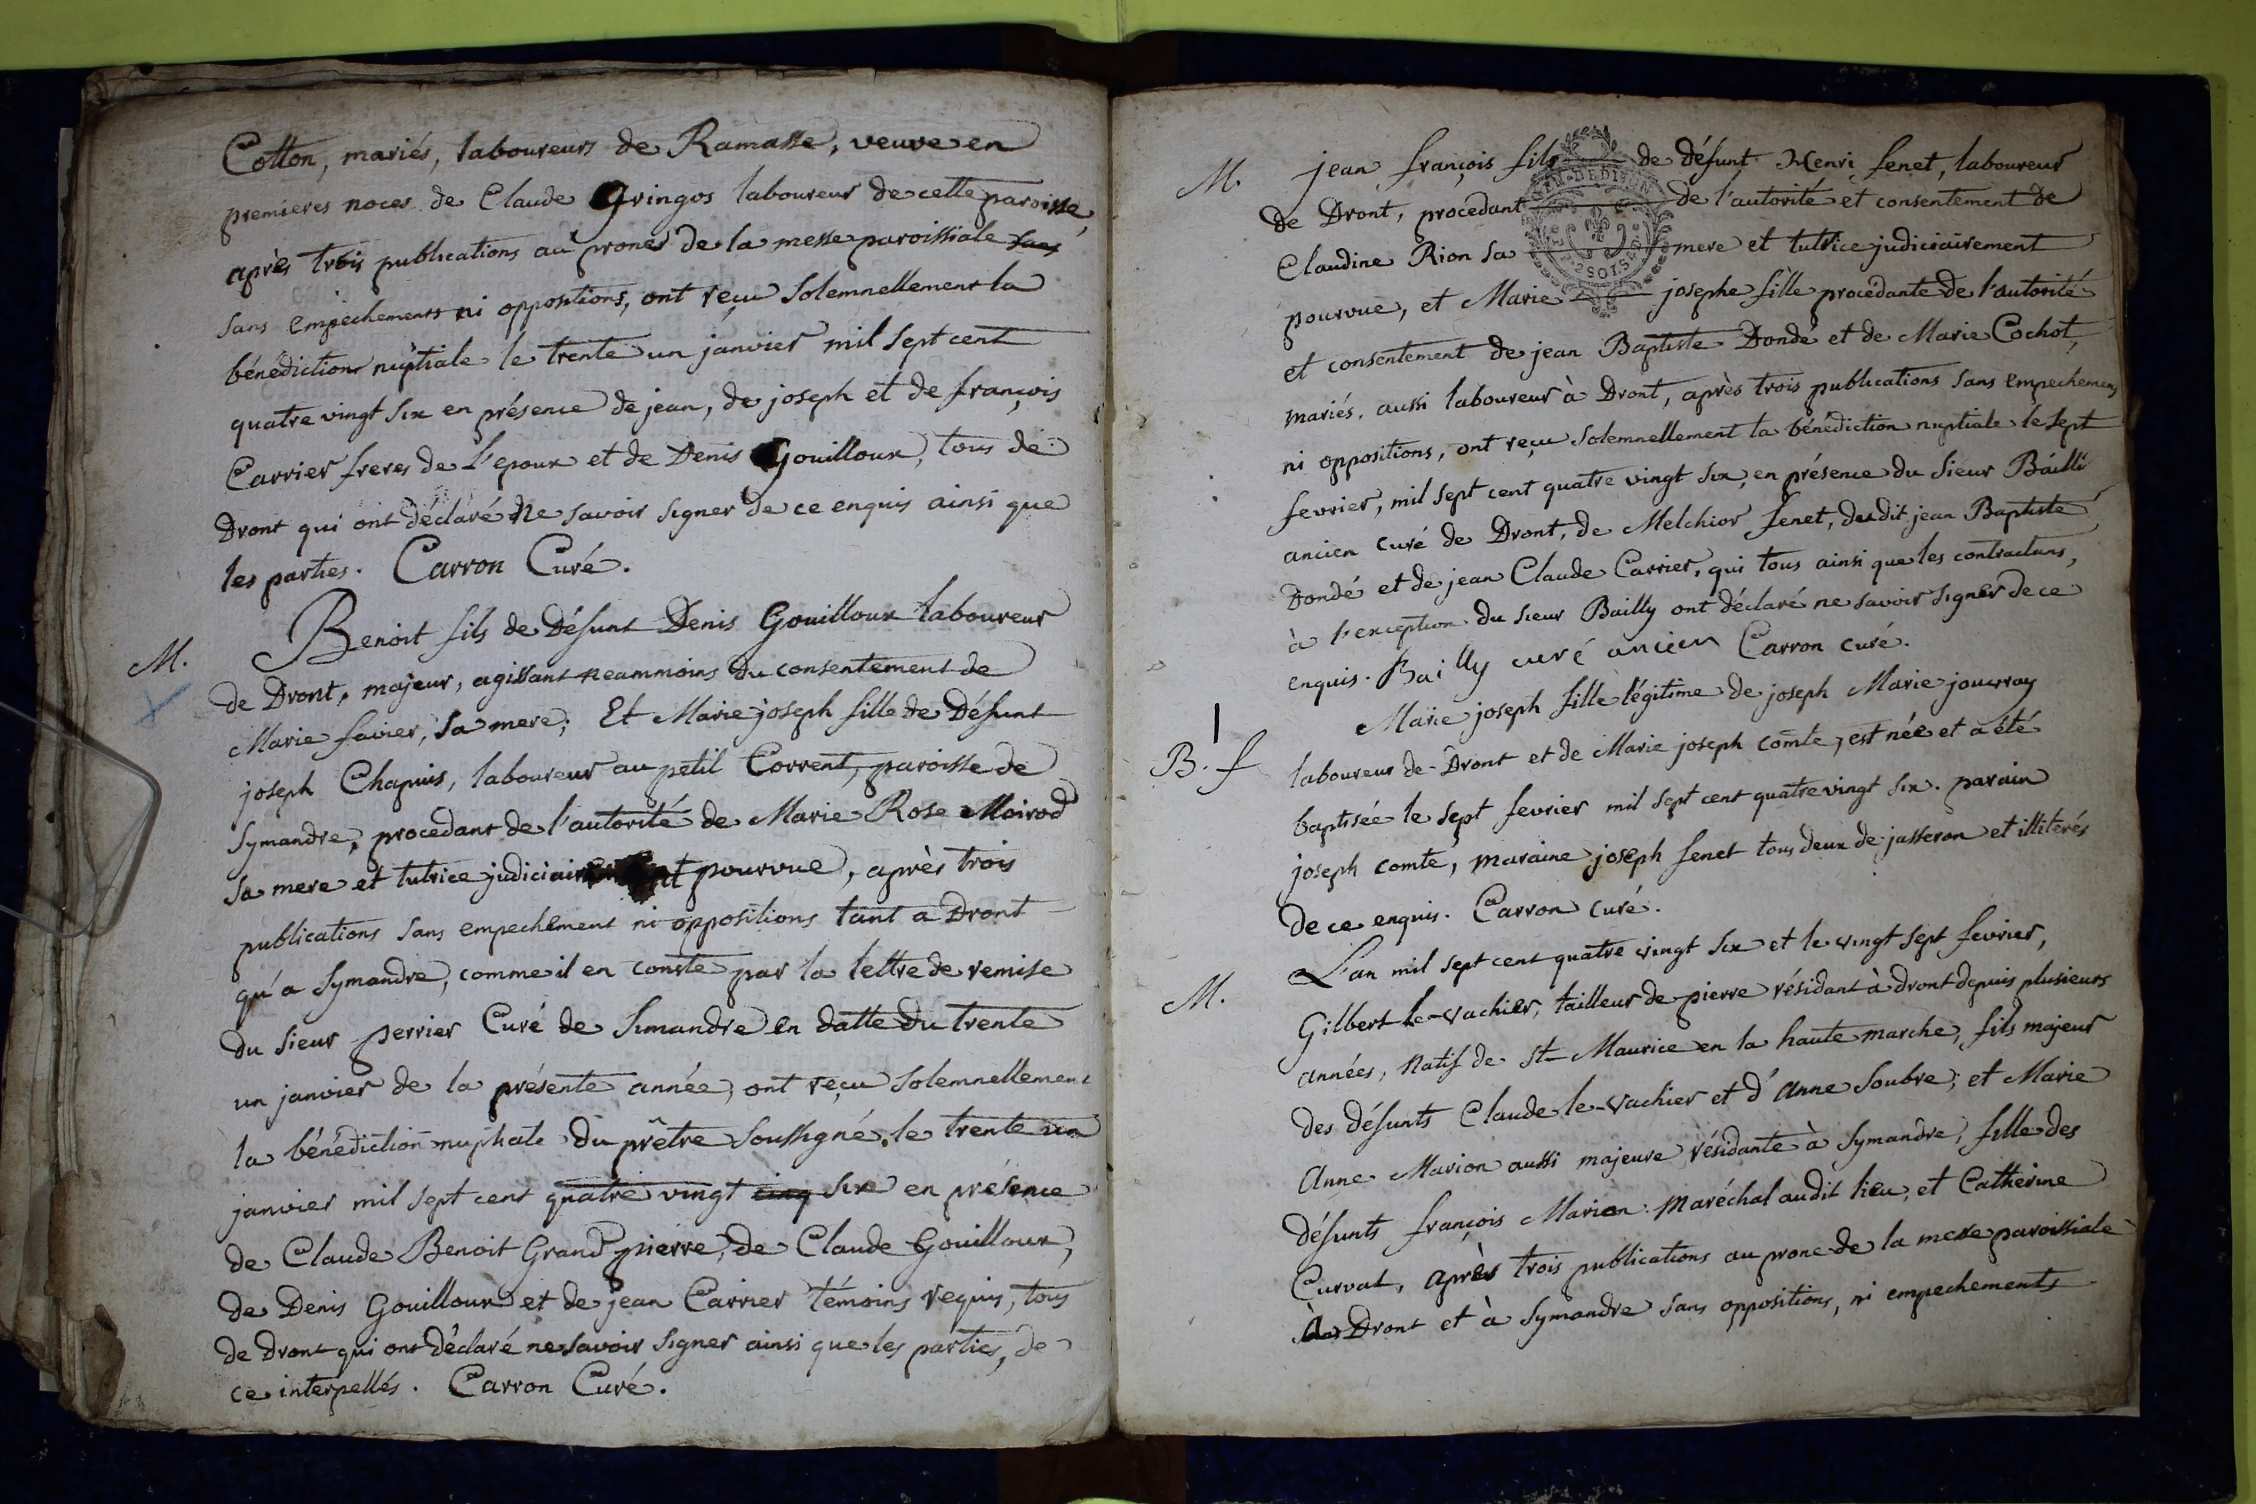 Cotton, mariés, laboureurs de Ramasse, veuve en
premieres noces de Claude Gringos laboureur de cette paroisse,
après trois publications au prones de la messe paroissiale sans
sans empechements ni oppositions, ont reçu solemnellement la
bénédiction nuptiale le trente un janvier mil sept cent
quatre vingt six en présence de jean, de joseph et de françois
Carrier freres de l'epoux et de Denis Gouilloux, tous de
Dront qui ont déclaré ne savoir signer de ce enquis ainsi que
les parties. Carron Curé.
M.
Benoit fils de Défunt Denis Gouilloux laboureur
de Dront, majeur, agissant neammoins du consentement de
Marie favier, sa mere; Et Marie joseph fille de Défunt
joseph Chapuis, laboureur au petit Corrent, paroisse de
Symandre, procedant de l'autorité de Marie Rose Moirod
sa mere et tutrice judiciairement pourvue, après trois
publications sans empechement ni oppositions tant a Dront
qu'a Symandre, comme il en conste par la lettre de remise
du sieur perrier Curé de Simandre en datte du trente
un janvier de la présente année, ont reçu solemnellement
la bénédiction nuptiale du prêtre soussigné, le trente un
janvier mil sept cent quatre vingt cinq six en présence
de Claude Benoit Grandpierre, de Claude Gouilloux,
de Denis Gouilloux et de jean Carrier témoins requis, tous
de Dront qui ont déclaré ne savoir signer ainsi que les parties, de
ce interpellés. Carron Curé.
M.
jean françois fils de défunt Henri fenet, laboureur
de Dront, procedant de l'autorité et consentement de
Claudine Rion sa mere et tutrice judiciairement
pourvue, et Marie josephe fille procedante de l'autorité
et consentement de jean Baptiste Dondé et de Marie Cochot,
mariés, aussi laboureur à Dront, après trois publications sans empechemens
ni oppositions, ont reçu solemnellement la bénédiction nuptiale le sept
fevrier, mil sept cent quatre vingt six, en présence du sieur Bailli
ancien curé de Dront, de Melchior fenet, dudit jean Baptiste
Dondé et de jean Claude Carrier, qui tous ainsi que les contractans,
à l'exception du sieur Bailly ont déclaré ne savoir signer de ce
enquis. Bailly curé ancien Carron curé.
1
B. f
Marie joseph fille légitime de joseph Marie jouvray
laboureur de Dront et de Marie joseph comte, est née et a été
baptisée le sept fevrier mil sept cent quatre vingt six. parain
joseph comte, maraine joseph fenet tous deux de jasseron et illiterés
de ce enquis. Carron curé.
M.
L'an mil sept cent quatre vingt six et le vingt sept fevrier,
Gilbert le-vachier, tailleur de pierre résidant à dront depuis plusieurs
années, natif de st Maurice en la haute marche, fils majeur
des défunts Claude le-vachier et d'anne Soubre; et Marie
Anne Marion aussi majeure résidante à Symandre, fille des
défunts françois Marion Maréchal audit lieu, et Catherine
Curvat, après trois publications au prone de la messe paroissiale
à Dront et à Symandre sans oppositions, ni empechements